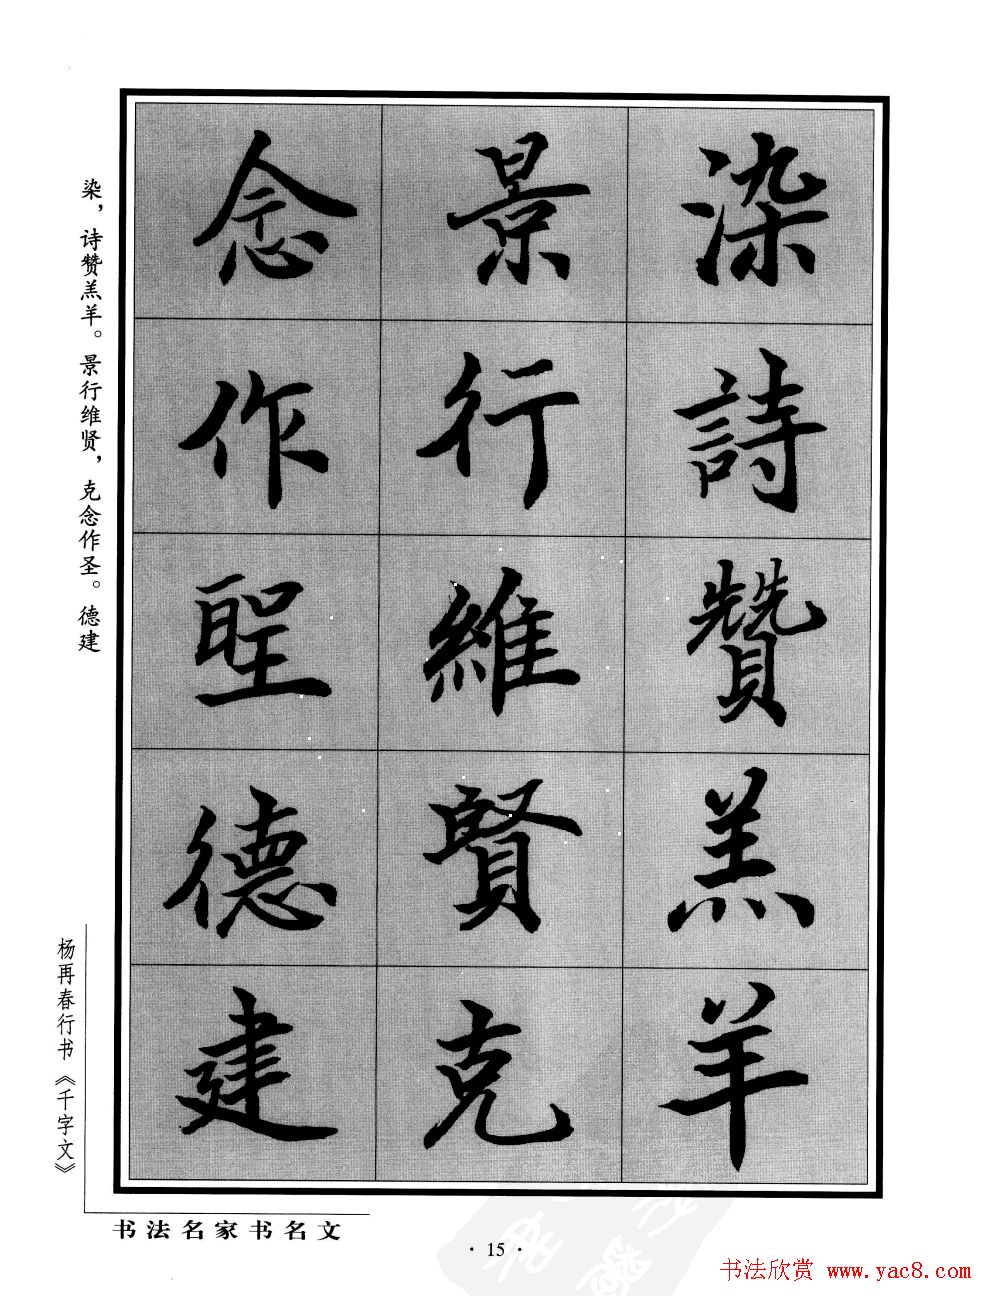 染詩贊羔羊
景行維賢克
念作聖德建
染，诗赞羔羊。景行维贤，克念作圣。德建
杨再春行书《千字文》
书法名家书名文
· 15 ·
书法欣赏 www.yac8.com